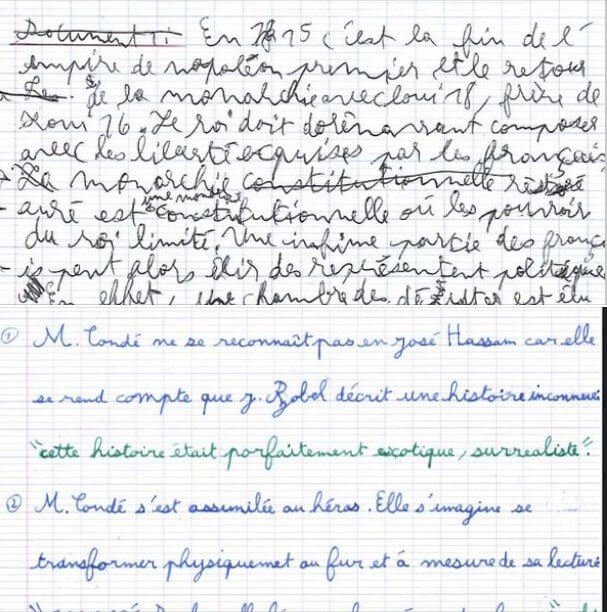 Document 1: En 1815 c'est la fin de l'
empire de napoléon premier et le retour
de la monarchie avec loui 18, frère de
loui 16. Le roi doit dorénavant composer
avec les liberté acquises par les français
La monarchie constitutionnelle rest
auré est une monar constitutionnelle où les pouvoir
du roi limité. Une infime partie des frança
is peut alors élir des représentent politique
En effet, une chambre des député est élu
① M. Condé ne se reconnaît pas en José Hassam car elle
se rend compte que J. Zobel décrit une histoire inconnue
"cette histoire était parfaitement exotique, surrealiste".
② M. Condé s'est assimilée au héros. Elle s'imagine se
transformer physiquemet au fur et à mesure de sa lecture